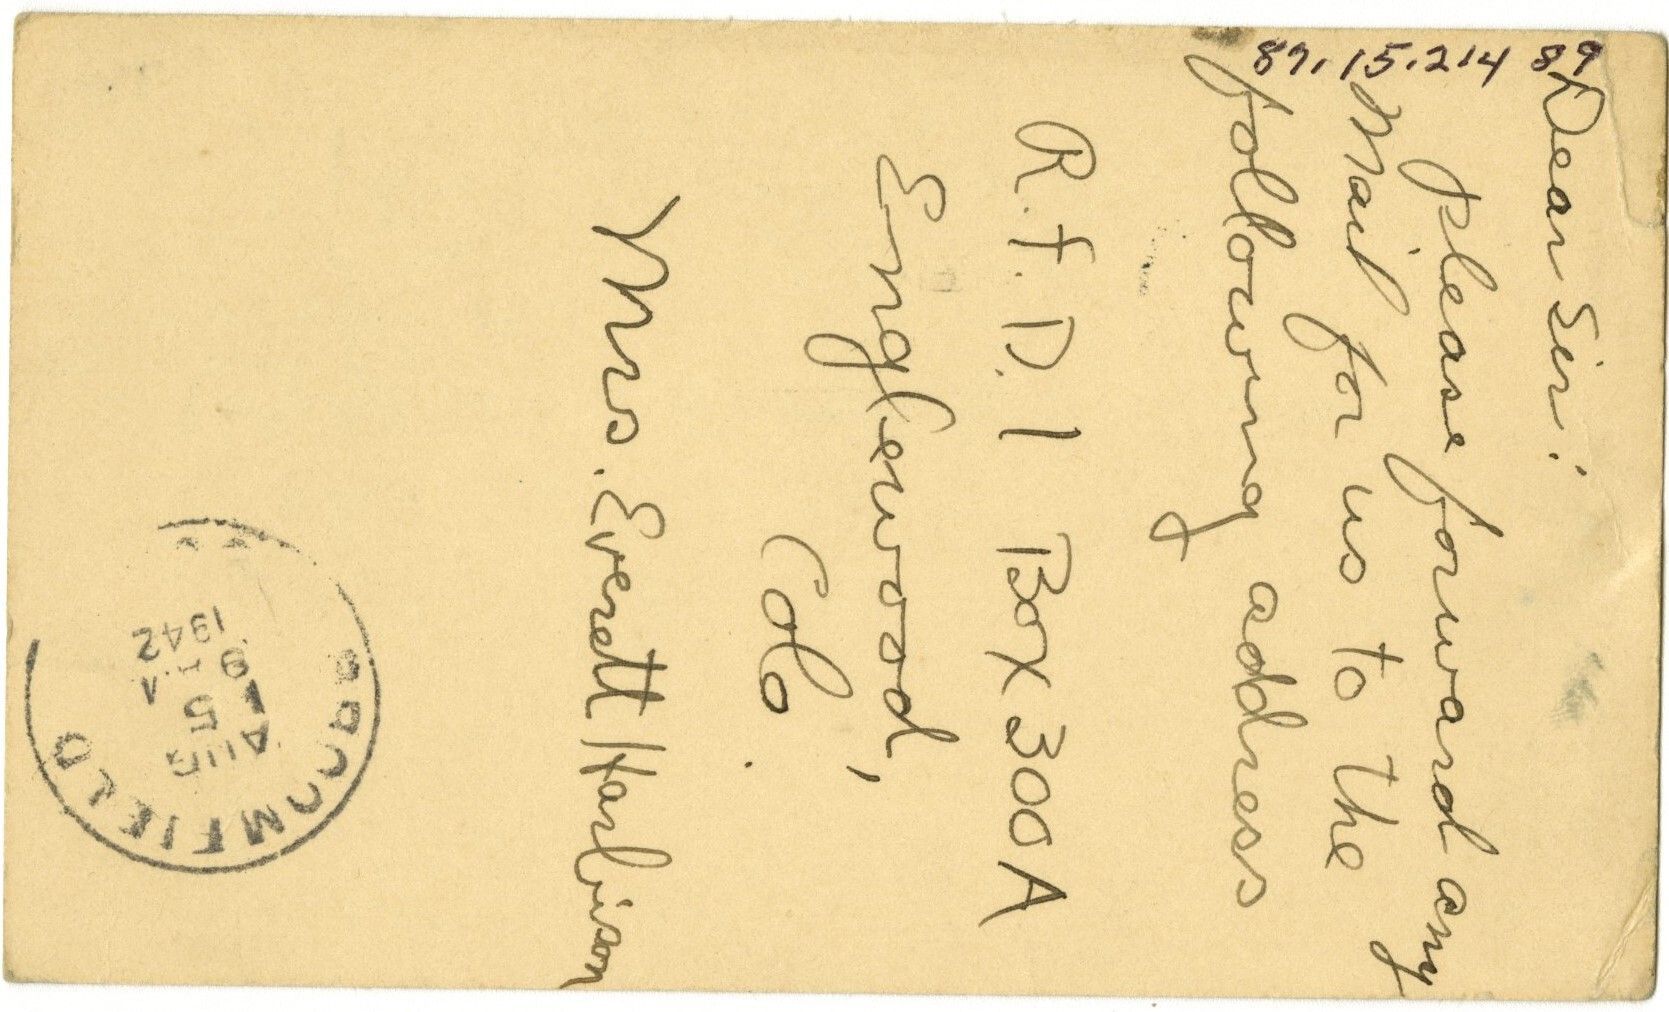 89.15.214 89
Dear Sir:
please forward any
Mail for us to the
following address
R.f.D. 1 Box 300A
Englewood,
Colo.
Mrs. Everett Harbison
BROOMFIELD
AUG
5
9
1942